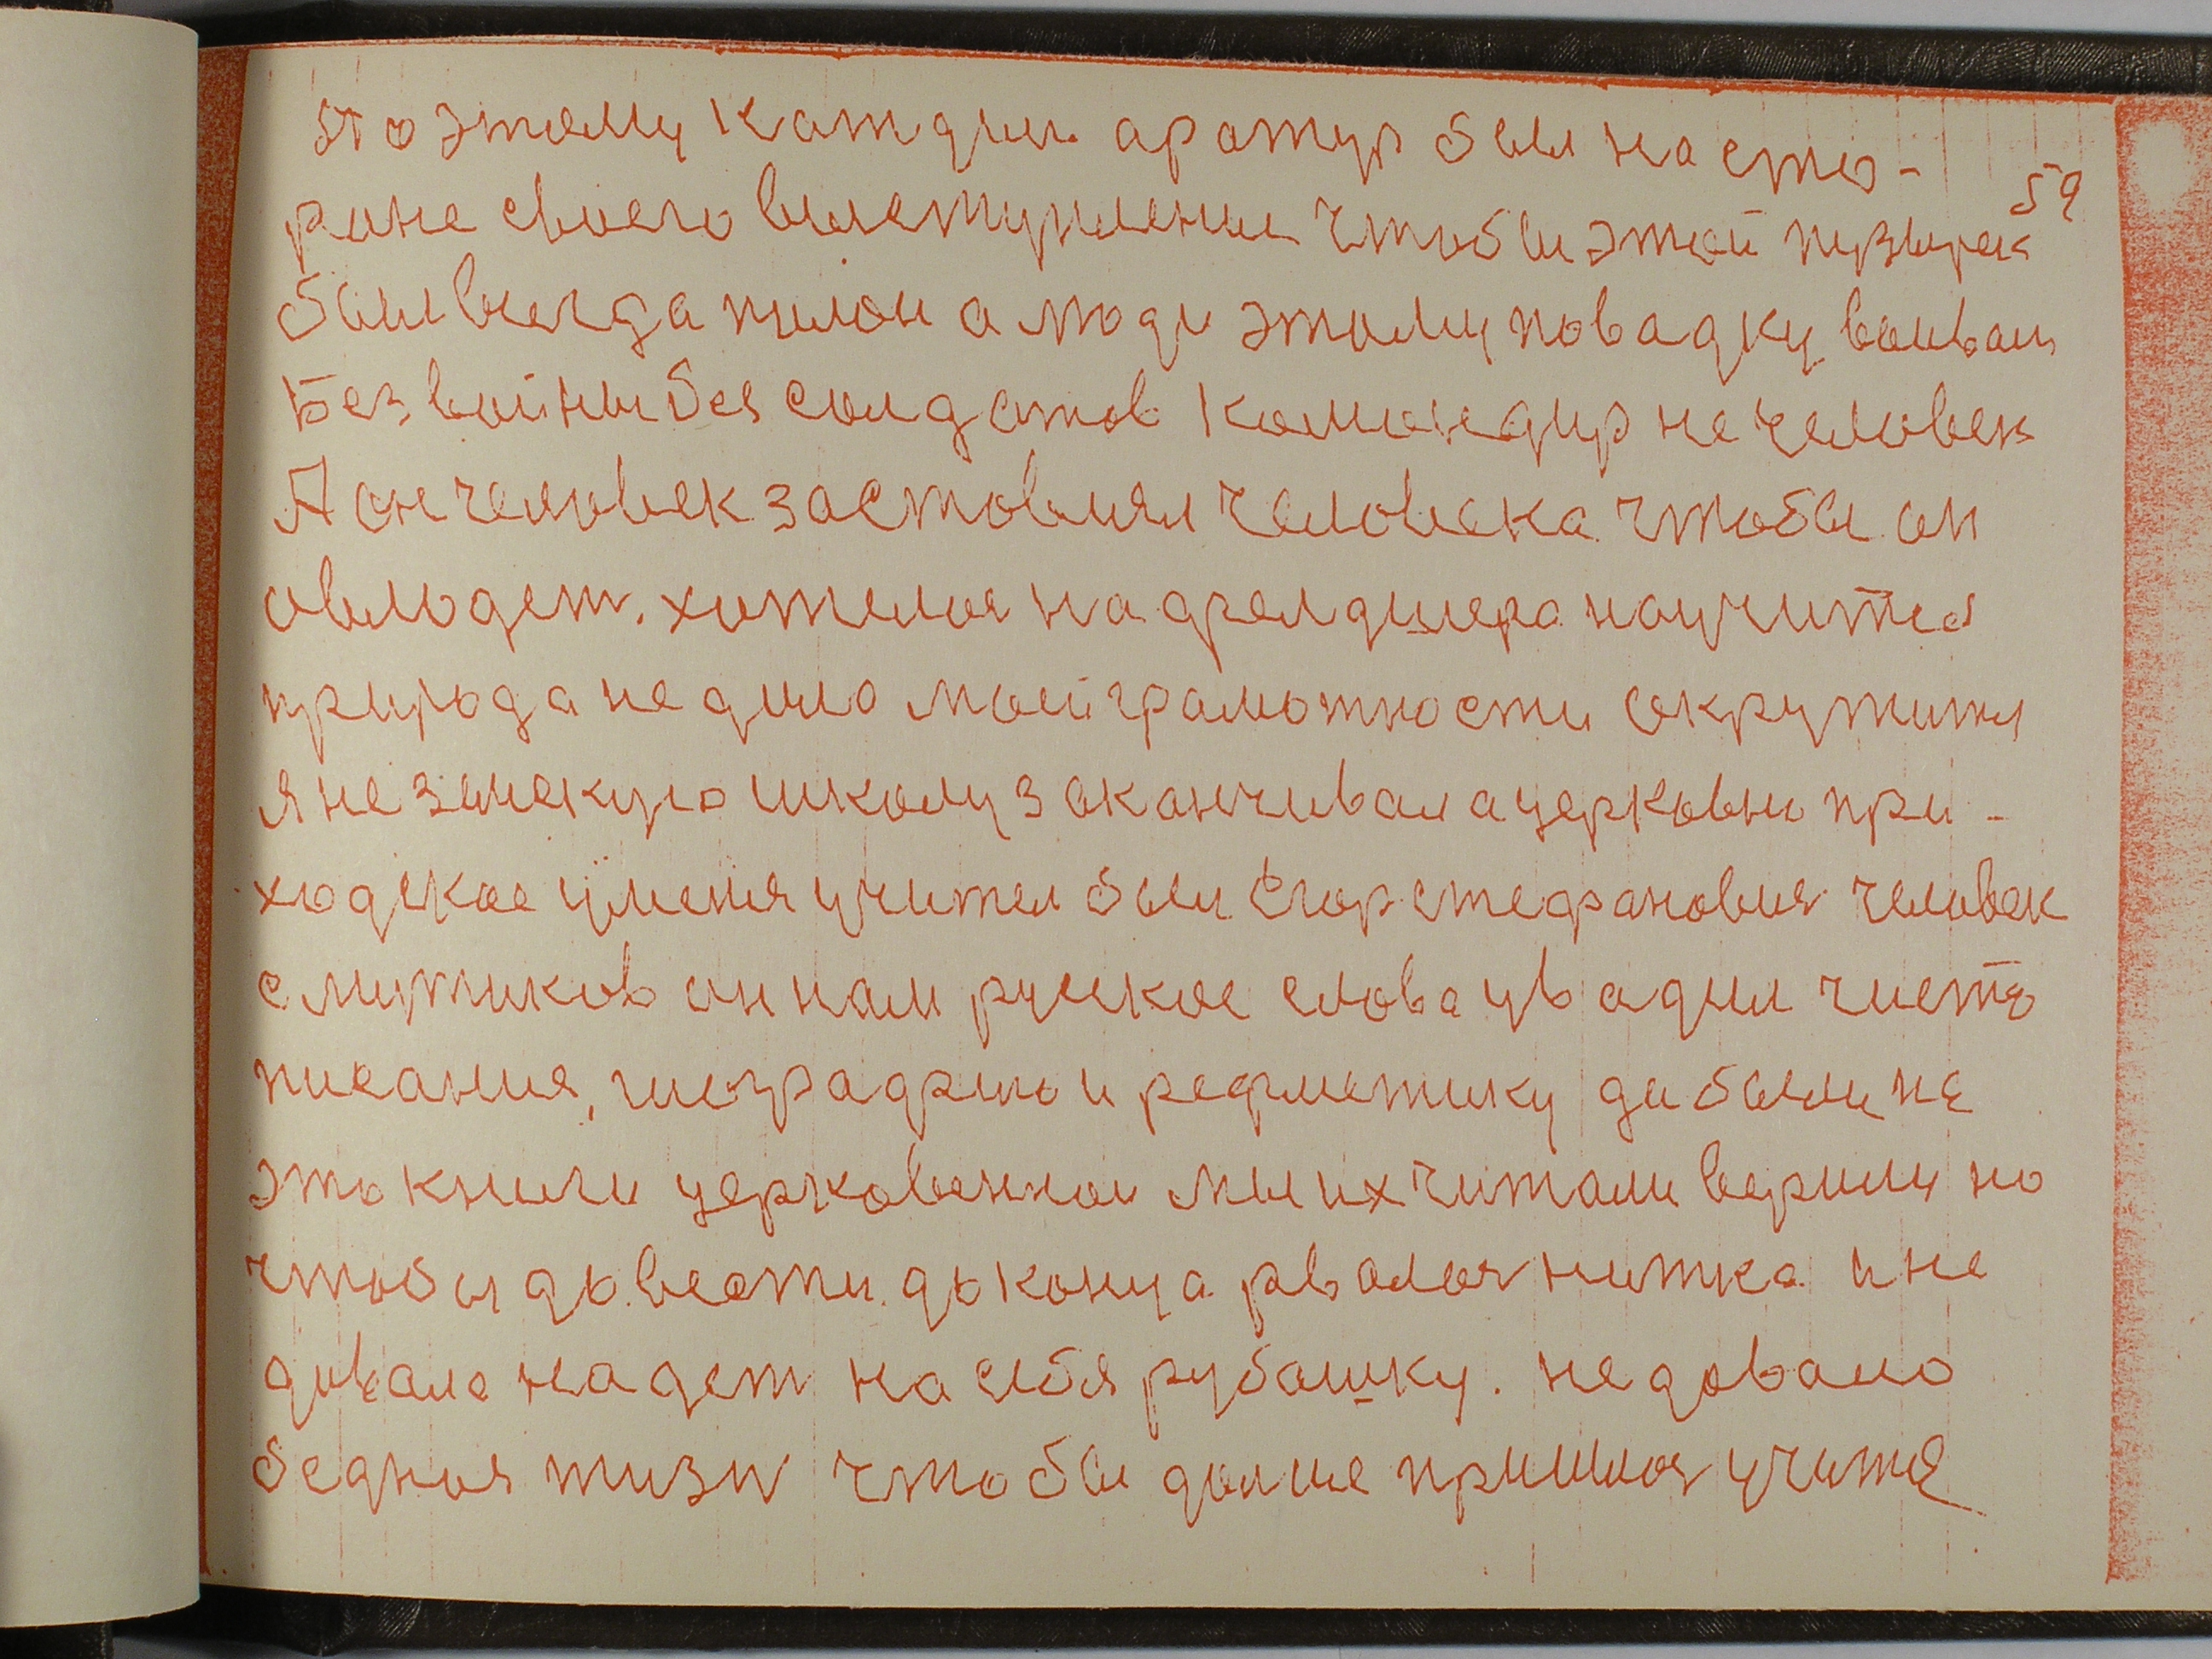 поэтому каждый аратур был на сто-
59
роне своего выступления чтобы этой пузырек
был всегда пилон а люди этому повадку
Без войны без солдатов командир не человек
А он человек заставлял человека чтобы он
овлодет. хотелоя на фелдшера научится
природа не дило моей грамотности окружит
я не земскую школу заканчивал а церковно при-
ходское имения учител был Егор Стефановия человек
с мужиков он нам русское слова уводил чисто
писания, География и рефметику да были не
это книги церковенной мы их читали верили но
чтобы довести до конца рвалоя нитка и не
довало надет на себя рубашку. не довало
бедноя жизн чтобы долше пришлоя учитя